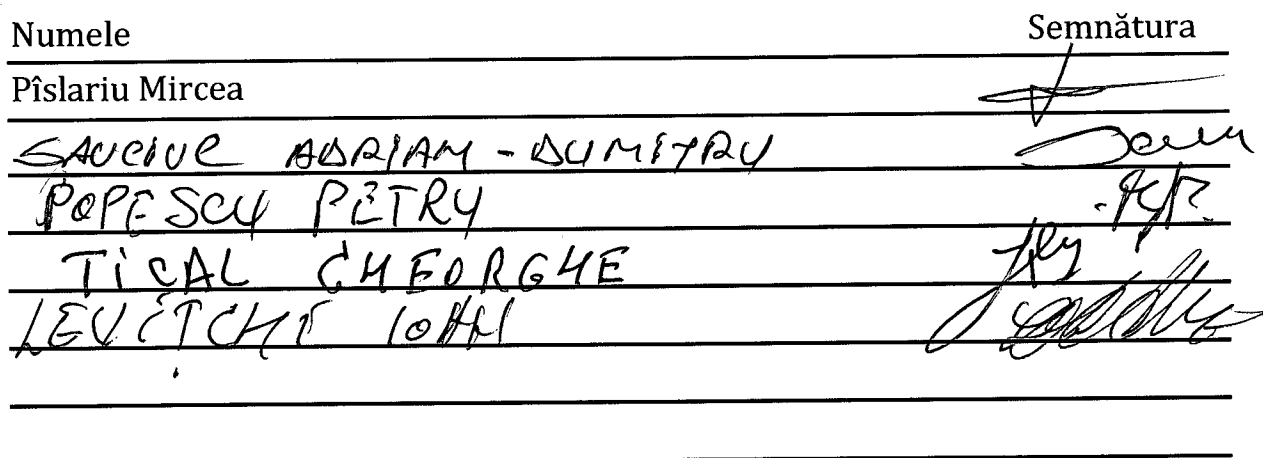 Numele Semnătura
Pîslariu Mircea
SAUCIUC ADRIAN-DUMITRU
POPESCU PETRU
TICAL GHEORGHE
LEVIȚCHI IOAN